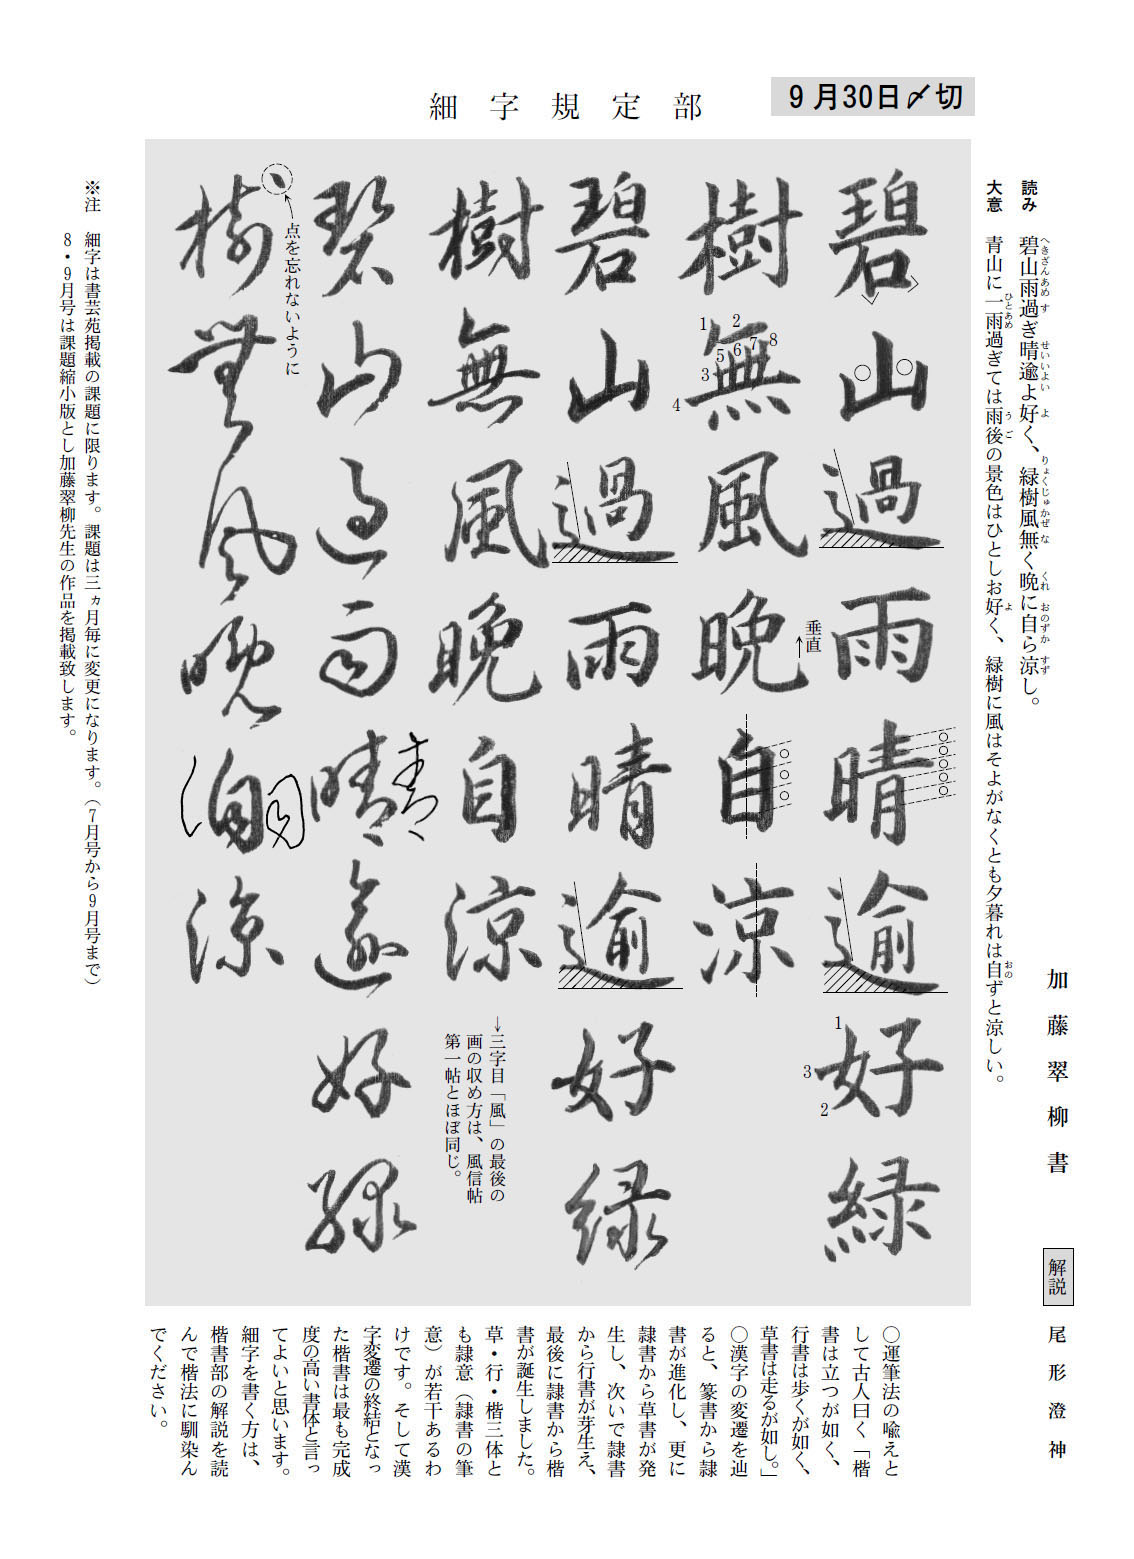 細字規定部
9月30日〆切
読み 碧山雨過ぎ晴逾よ好く、緑樹風無く晩に自ら涼し。
へきざんあめ す せいいよい よ りょくじゅかぜ な くれ おのずか すず
大意 青山に一雨過ぎては雨後の景色はひとしお好く、緑樹に風はそよがなくとも夕暮れは自ずと涼しい。
ひとあめ うご よ おの
加藤翠柳書
碧山過雨晴逾好緑
1
3
2
樹無風晩自涼
1
2
5
6
7
8
3
4
垂直
碧山過雨晴逾好緑
樹無風晩自涼
↓三字目「風」の最後の
画の収め方は、風信帖
第一帖とほぼ同じ。
碧山過雨晴逾好緑
晴
樹無風晩自涼
点を忘れないように
自
※注 細字は書芸苑掲載の課題に限ります。課題は三ヵ月毎に変更になります。(7月号から9月号まで)
8・9月号は課題縮小版とし加藤翠柳先生の作品を掲載致します。
解説 尾形澄神
○運筆法の喩えと
して古人曰く「楷
書は立つが如く、
行書は歩くが如く、
草書は走るが如し。」
○漢字の変遷を辿
ると、篆書から隷
書が進化し、更に
隷書から草書が発
生し、次いで隷書
から行書が芽生え、
最後に隷書から楷
書が誕生しました。
草・行・楷三体と
も隷意（隷書の筆
意）が若干あるわ
けです。そして漢
字変遷の終結となっ
た楷書は最も完成
度の高い書体と言っ
てよいと思います。
細字を書く方は、
楷書部の解説を読
んで楷法に馴染ん
でください。